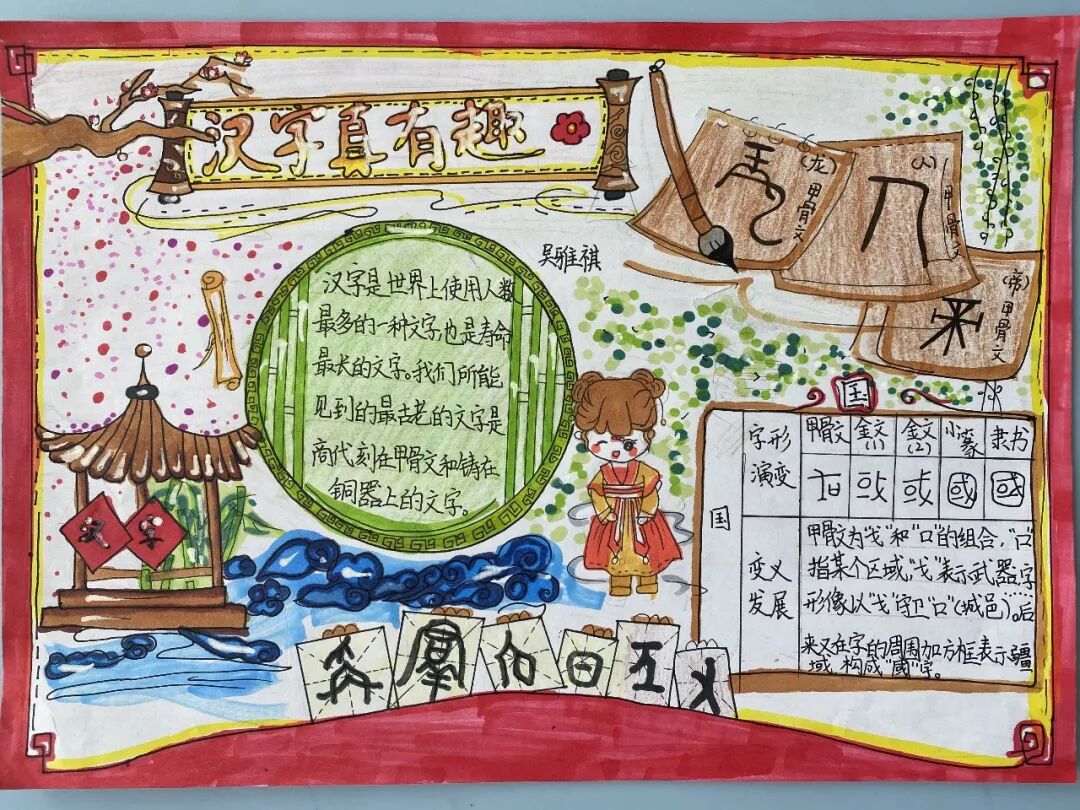 汉字真有趣
吴雅祺
汉字是世界上使用人数
最多的一种文字也是寿命
最长的文字。我们所能
见到的最古老的文字是
商代刻在甲骨文和铸在
铜器上的文字。
(龙)甲骨文
甲骨文
(帝)甲骨文
汉字
国
国
字形
演变
甲骨文 金文(1) 金文(2) 小篆 隶书
國 國
变义
发展
甲骨文为"戈"和"口"的组合,"口"
指某个区域,"戈"表示武器,字
形像以"戈"守卫"口"(城邑)。后
来又在字的周围加方框表示疆
域,构成"國"字。